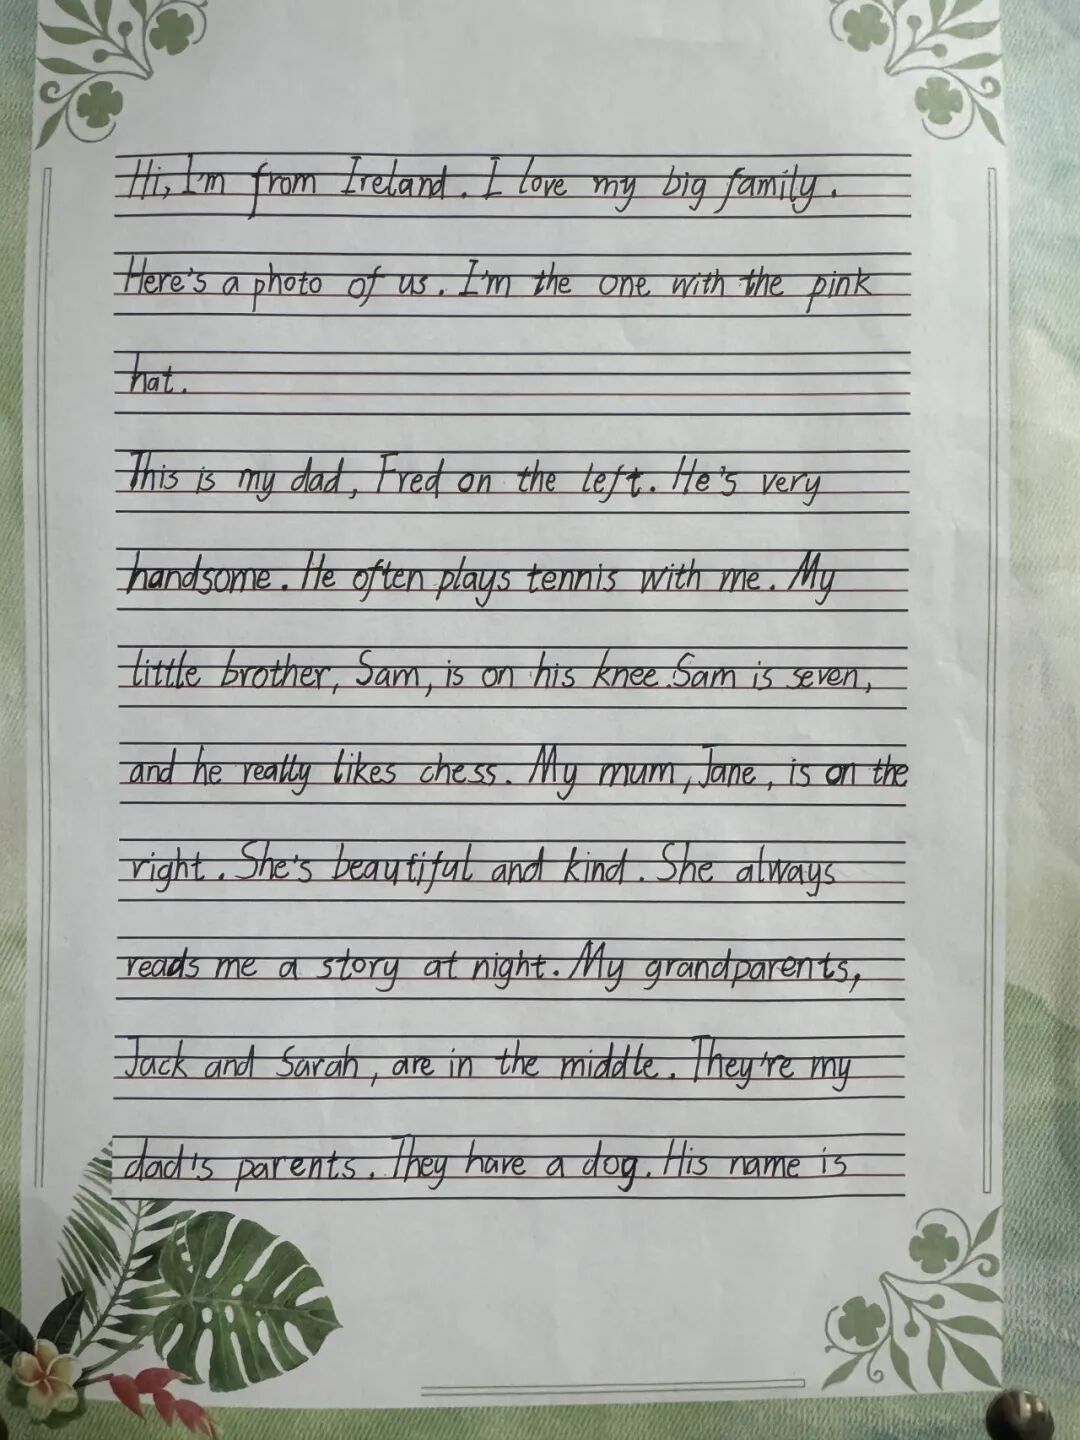 Hi, I'm from Ireland. I love my big family.
Here's a photo of us. I'm the one with the pink
hat.
This is my dad, Fred on the left. He's very
handsome. He often plays tennis with me. My
little brother, Sam, is on his knee. Sam is seven,
and he really likes chess. My mum, Jane, is on the
right. She's beautiful and kind. She always
reads me a story at night. My grandparents,
Jack and Sarah, are in the middle. They're my
dad's parents. They have a dog. His name is